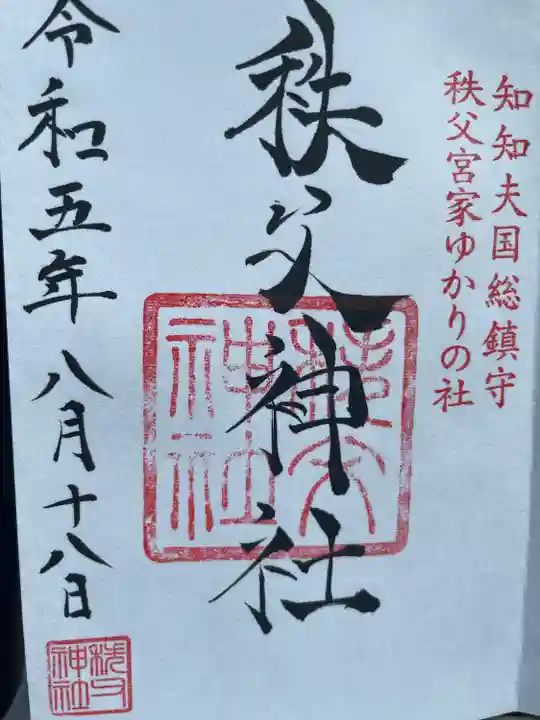 知知夫国総鎮守
秩父宮家ゆかりの社
秩父神社
令和五年八月十八日
秩父
神社
秩父
神社